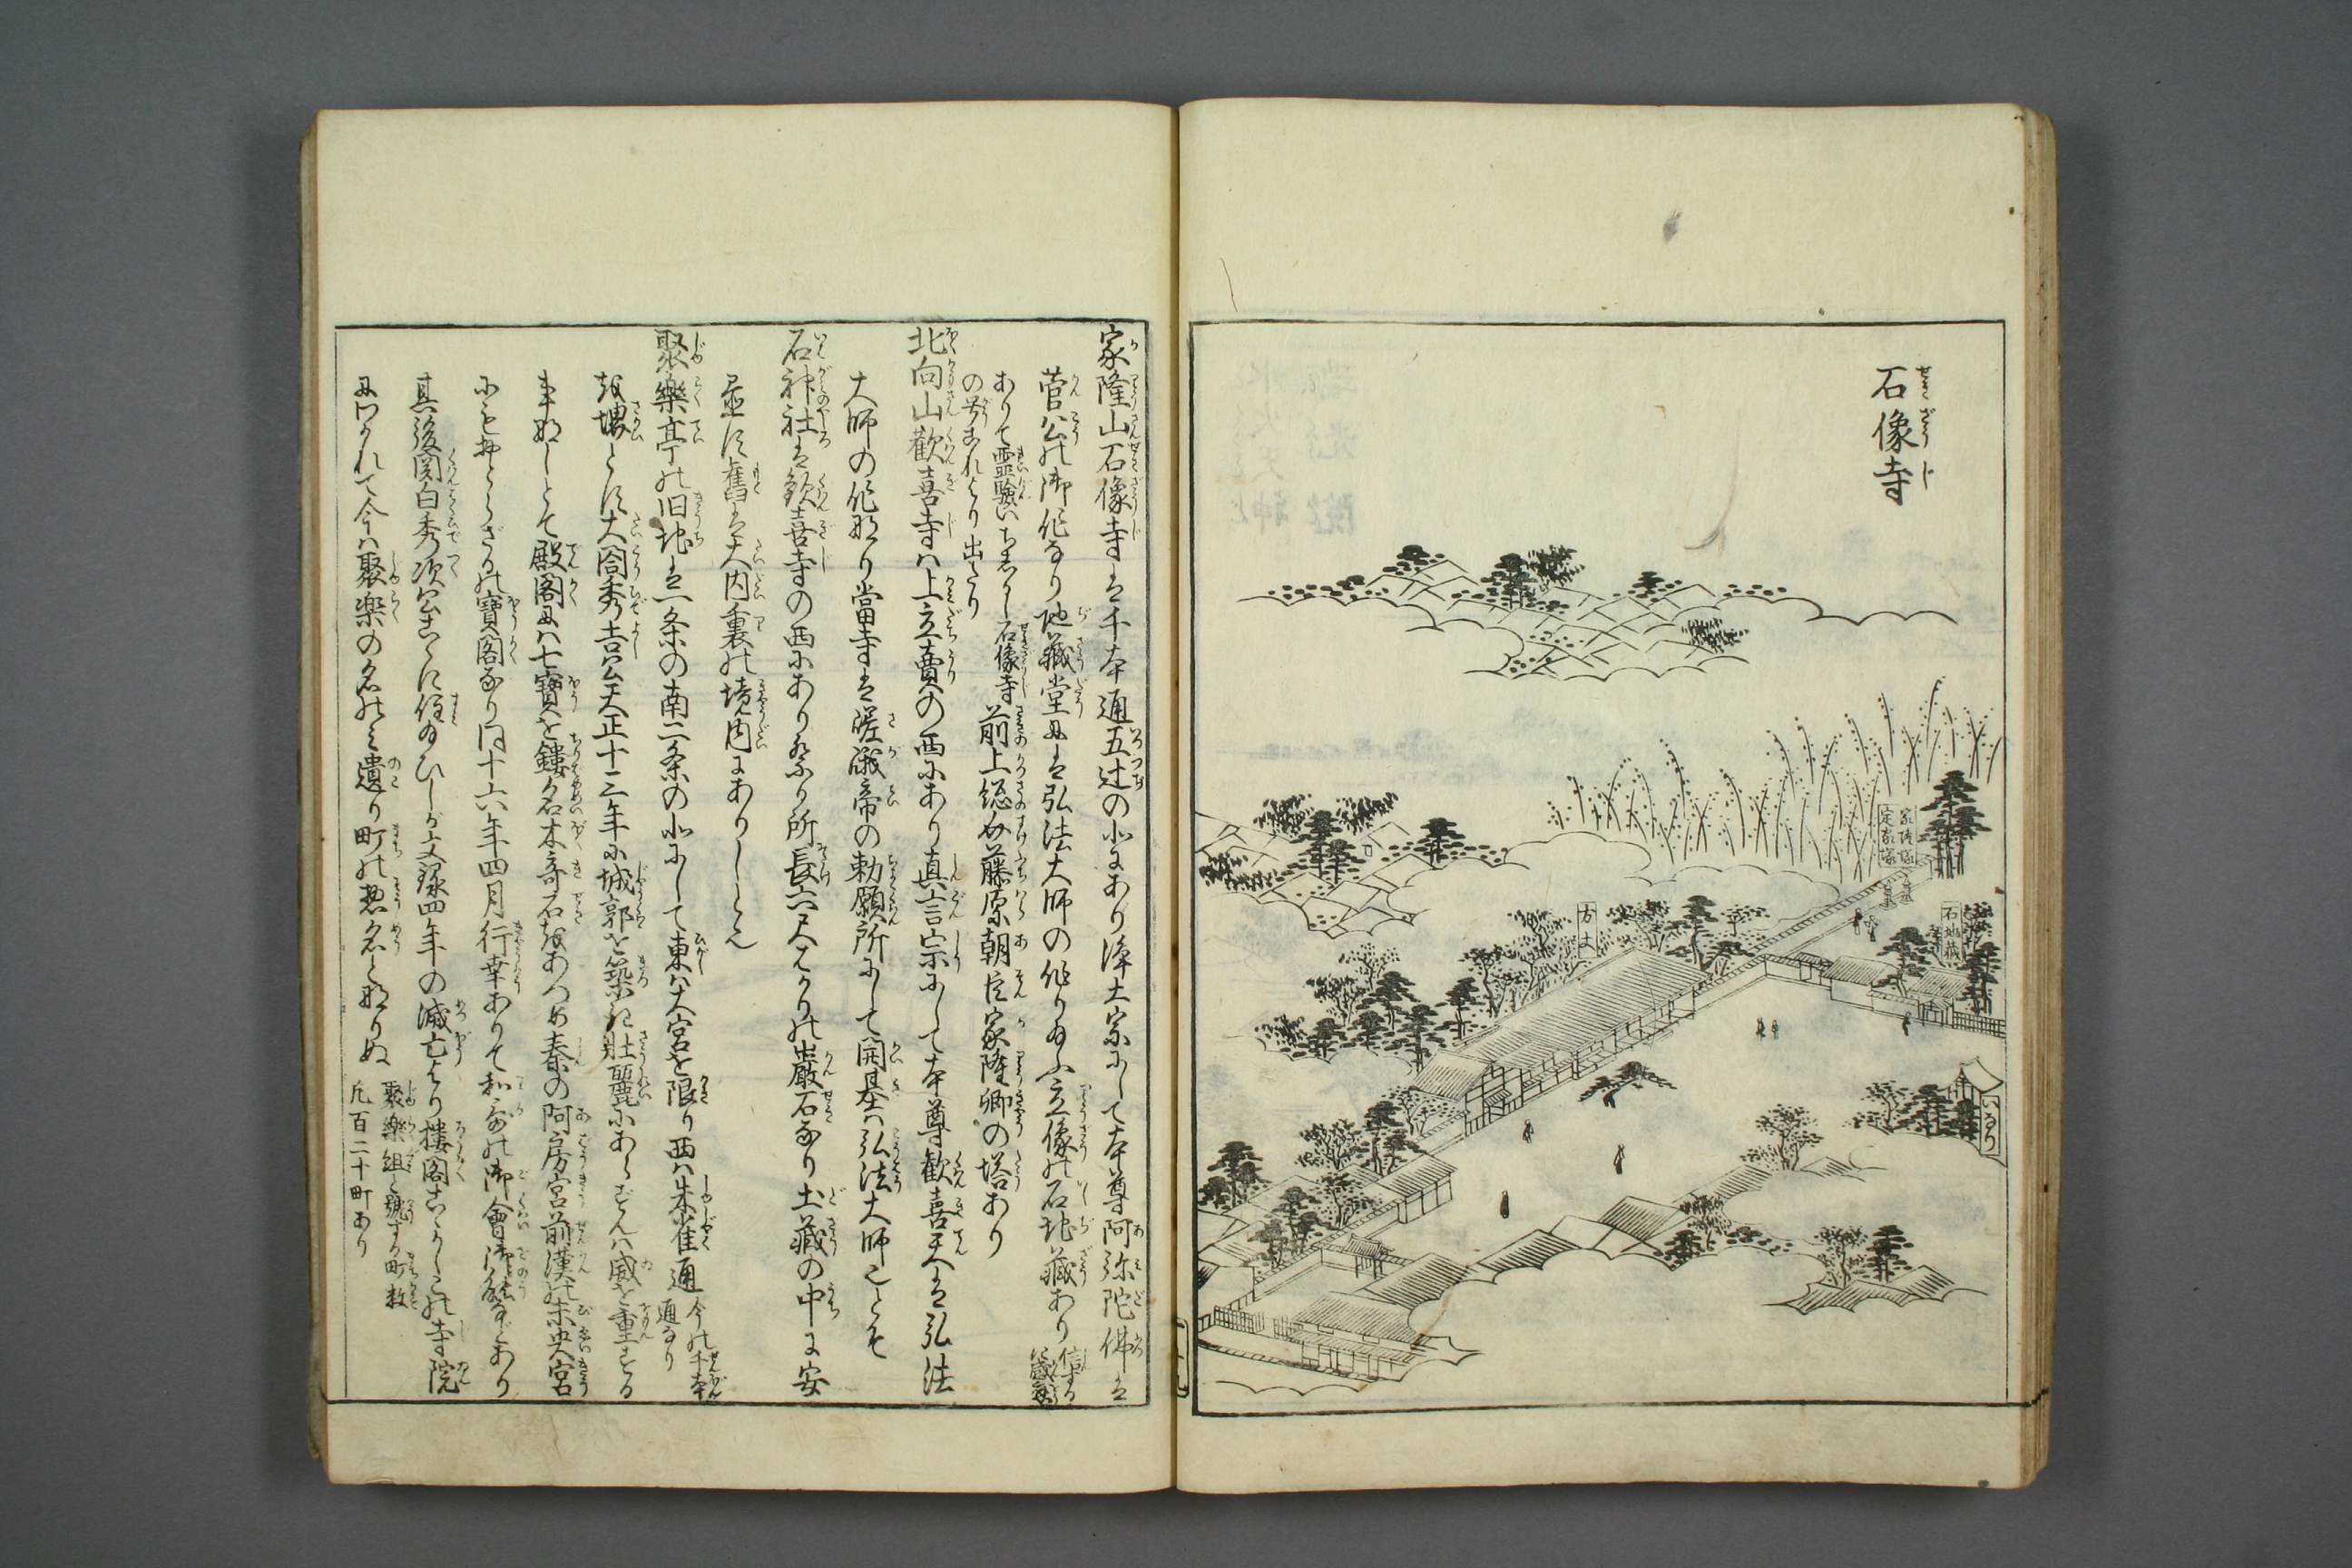 石像寺
家隆塚
定家塚
石地蔵
方丈
いなり
家隆山石像寺は千本通五辻の北にあり浄土宗にして本尊阿弥陀佛は
菅公の御作なり地蔵堂には弘法大師の作り給ふ立像の石地蔵あり
信する
に感應
ありて霊験いちじるし石像寺
の号これより出たり
前上総介藤原朝臣家隆卿の塔あり
北向山歓喜寺は上立賣の西にあり真言宗にして本尊歓喜天は弘法
大師の作なり當寺は嵯峨帝の勅願所にして開基は弘法大師也とぞ
石神社は歓喜寺の西にあり祭る所長六尺ばかりの巌石なり土蔵の中に安
置す舊は大内裏の境内にありしとぞ
聚樂亭の旧地は一条の南二条の北にして東は大宮を限り西は朱雀通
今の千本
通なり
を堺とす大閤秀吉公天正十二年に城郭を築き壯麗にあらずんば威を重する
事なしとて殿閣には七寶を鏤名木奇石をあつめ秦の阿房宮前漢の未央宮
にもおとらざるの寶閣なり同十六年四月行幸ありて和哥の御會御能などあり
其後関白秀次公こゝに住給ひしが文禄四年の滅亡より楼閣こと〴〵くの寺院
にわかれて今は聚楽の名のミ遺り町の惣名となりぬ
聚樂組と號する町数
凡百二十町あり